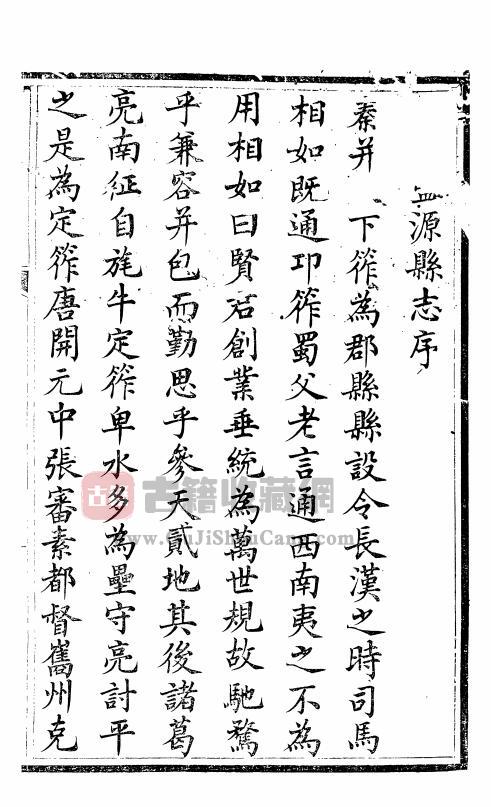 源縣志序
秦并 下筰為郡縣縣設令長漢之時司馬
相如既通卭筰蜀父老言通西南夷之不為
用相如曰賢君創業垂統為萬世規故馳騖
乎兼容并包而勤思乎參天貳地其後諸葛
亮南征自旄牛定筰卑水多為壘守亮討平
之是為定筰唐開元中張審素都督巂州克
古籍收藏網
www.GuJiShuCang.com